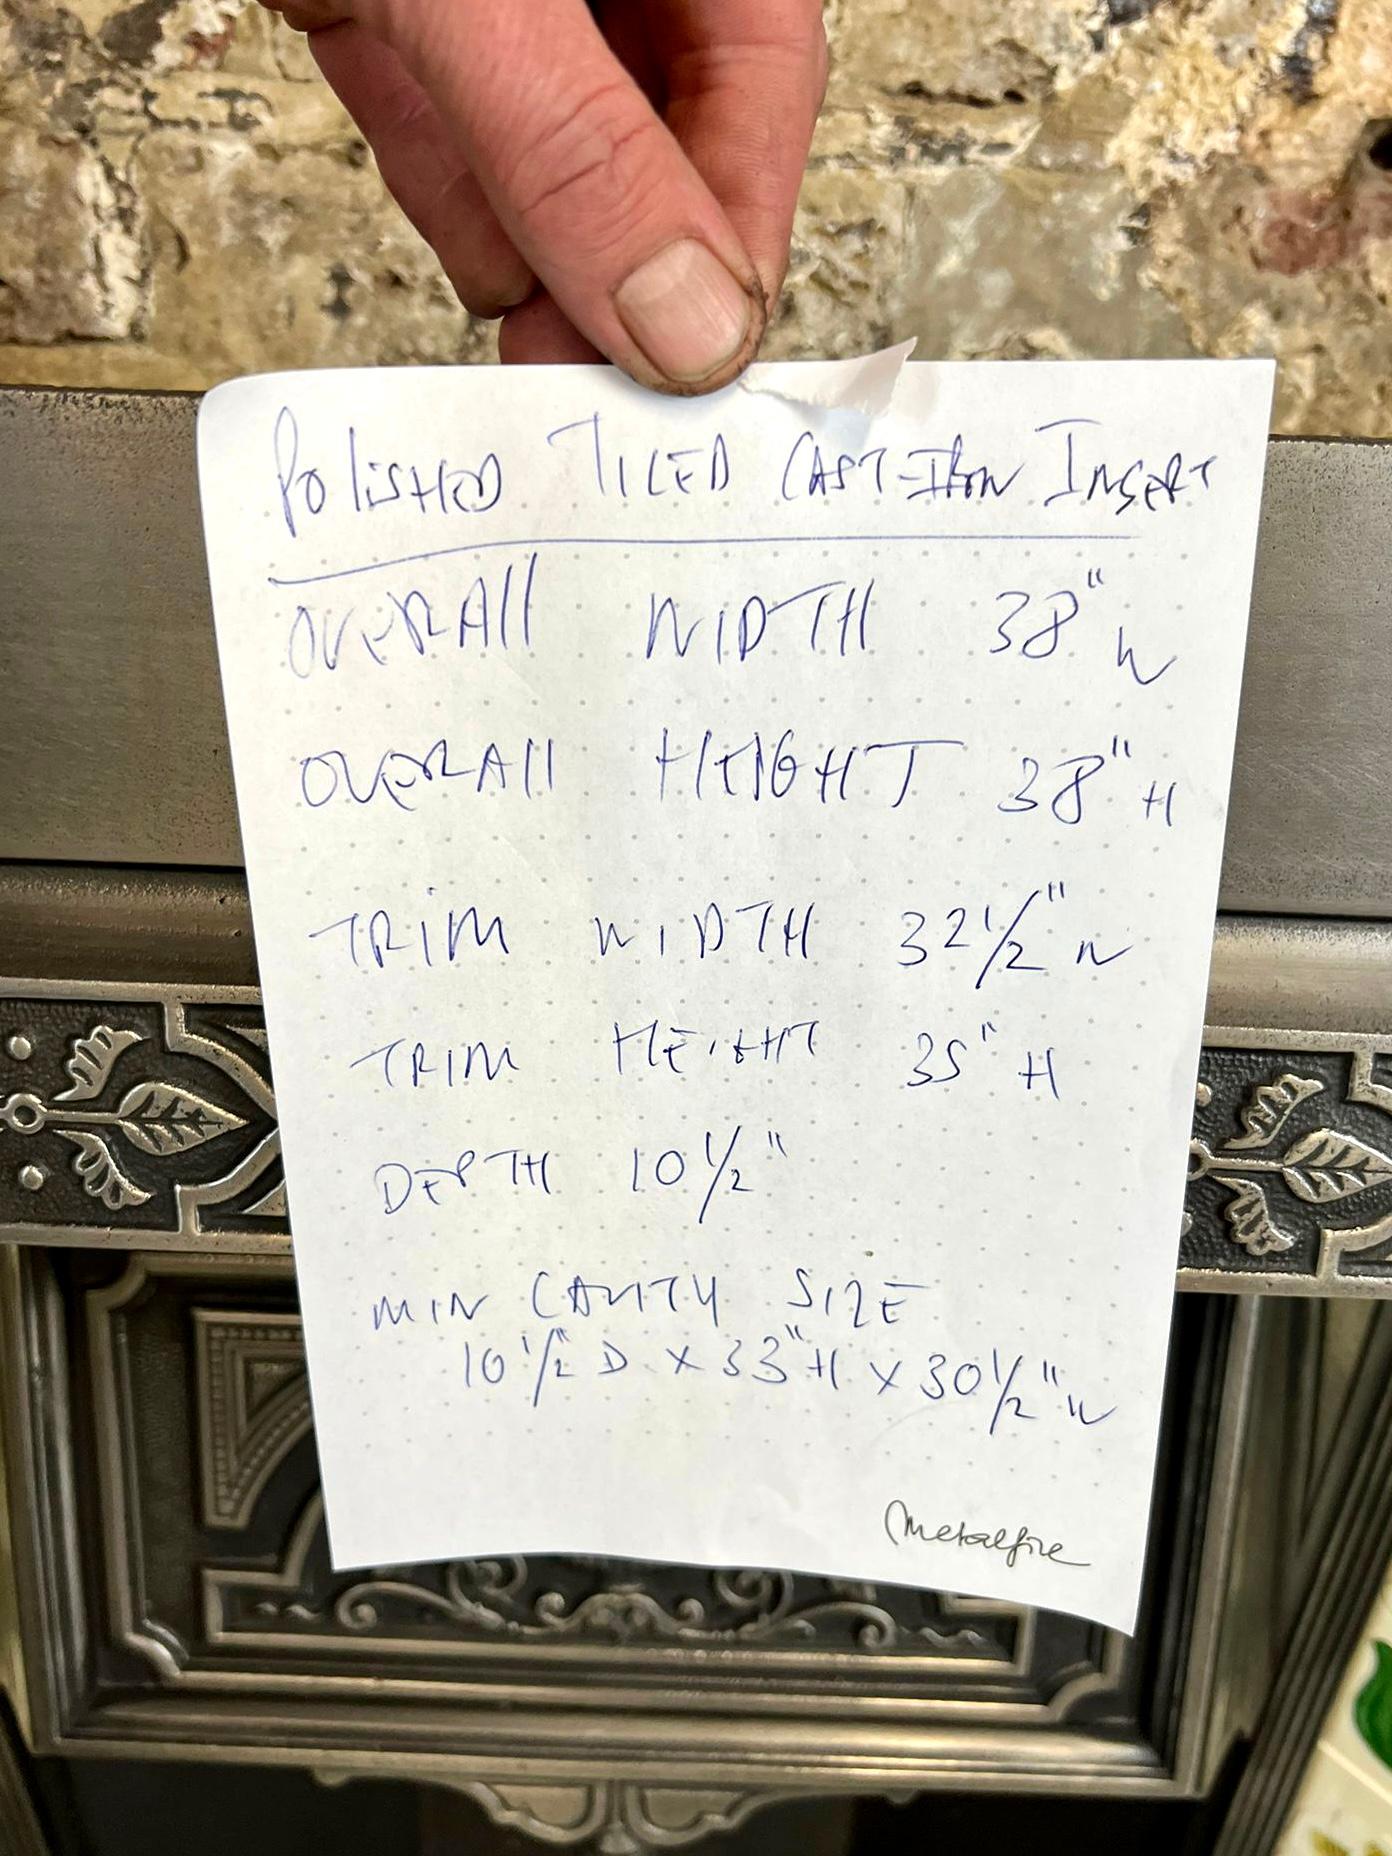 POLISHED TILED CAST-IRON INSERT
OVERALL WIDTH 38" W
OVERALL HEIGHT 38" H
TRIM WIDTH 32 1/2" W
TRIM HEIGHT 35" H
DEPTH 10 1/2"
MIN CAVITY SIZE
10 1/2" D x 33" H x 30 1/2" W
Metalfire